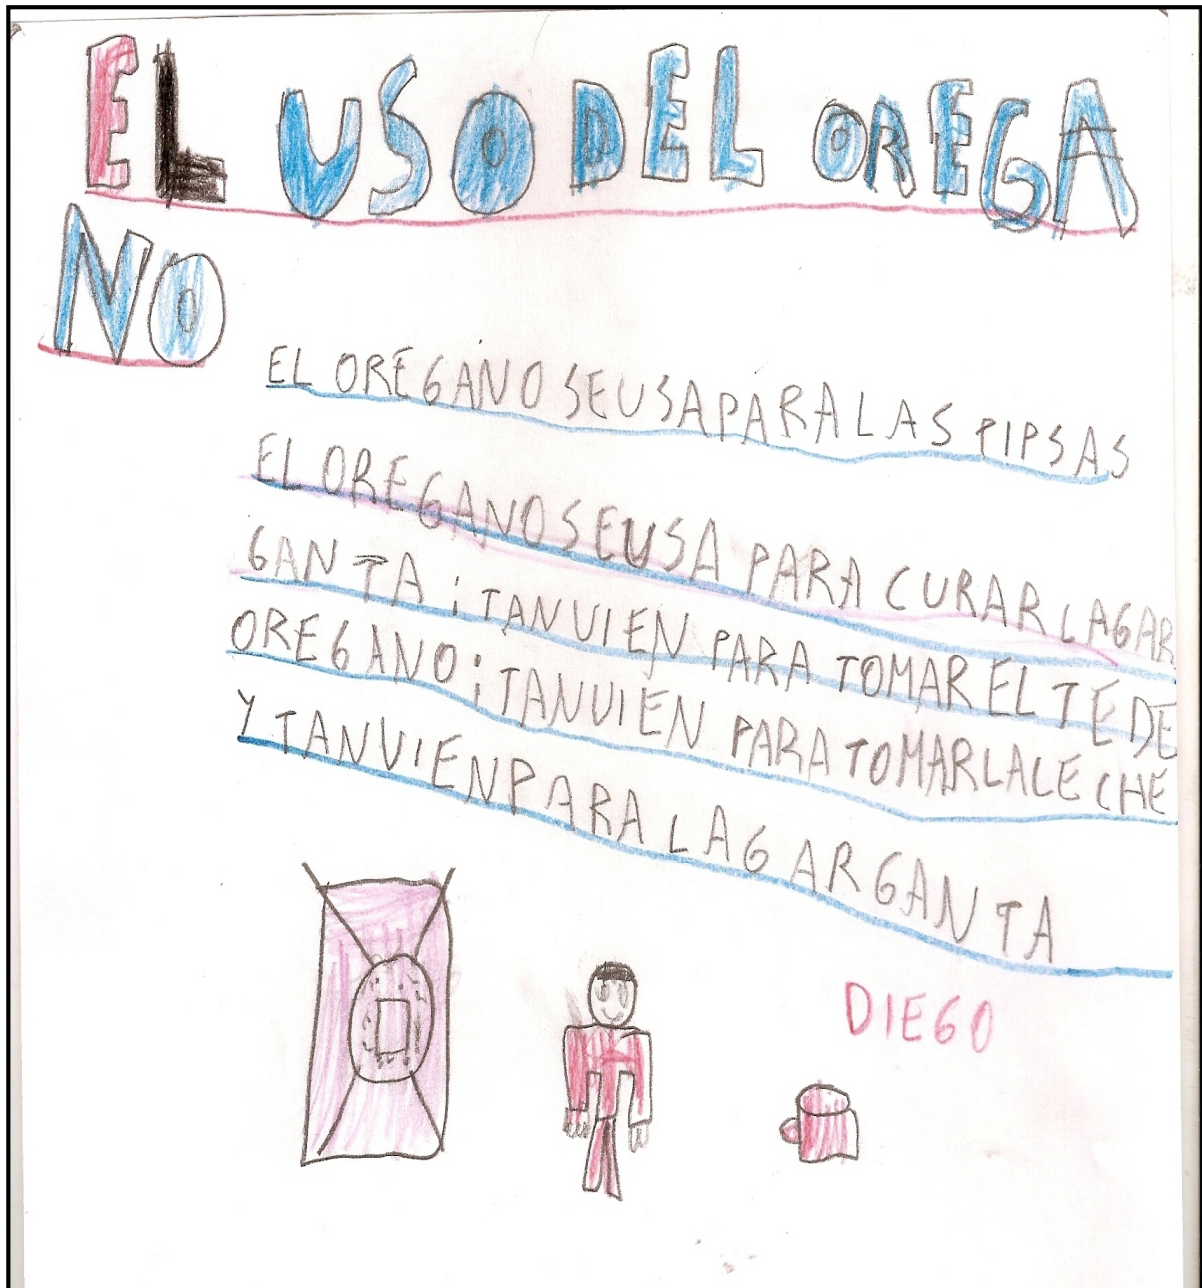 EL USO DEL OREGA
NO
EL OREGANO SEUSAPARALAS PIPSAS
EL OREGANOSEUSA PARA CURAR LAGAR
GANTA ¡TANVIEN PARA TOMAR EL TE DE
OREGANO ¡TANVIEN PARA TOMARLALECHE
Y TANVIENPARA LAGARGANTA
DIEGO